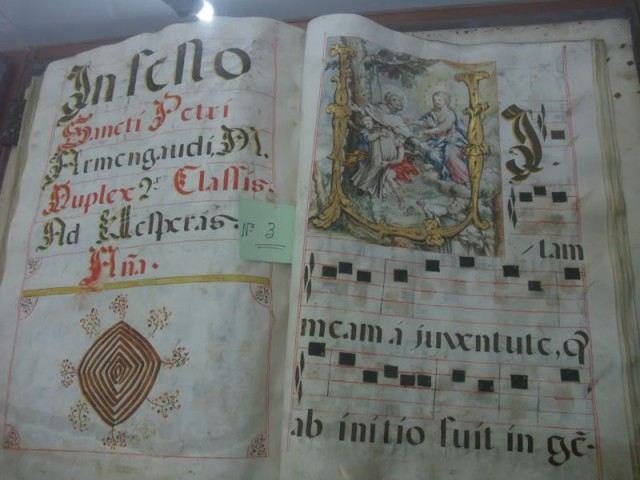 In festo
Sancti Petri
Armengaudi, M.
Duplex 2ᵃ Classis.
Ad Vesperas.
Aña.
Nº 3
V I
tam
meam á juventute, q̃
ab initio fuit in gẽ-